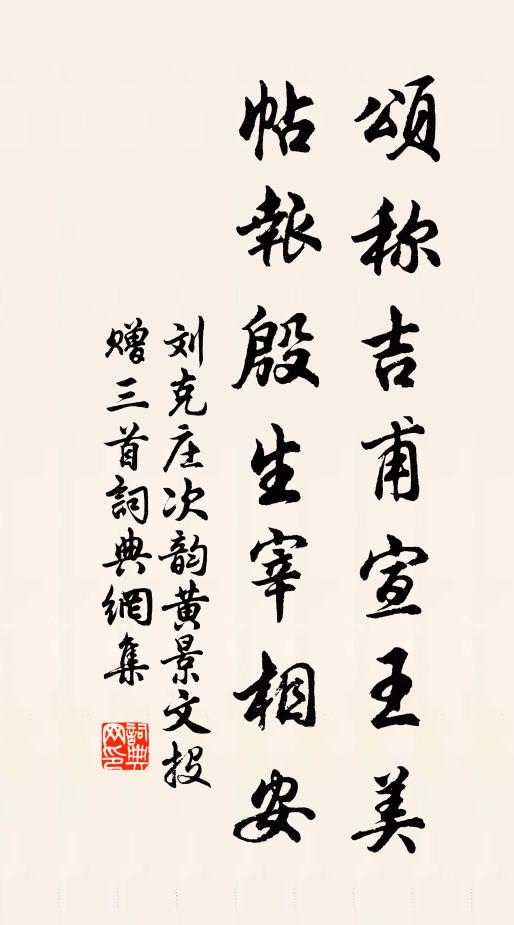 頌称吉甫宣王美
帖報殷生宰相安
刘克庄次韵黄景文投
赠三首詞典網集
詞典网印